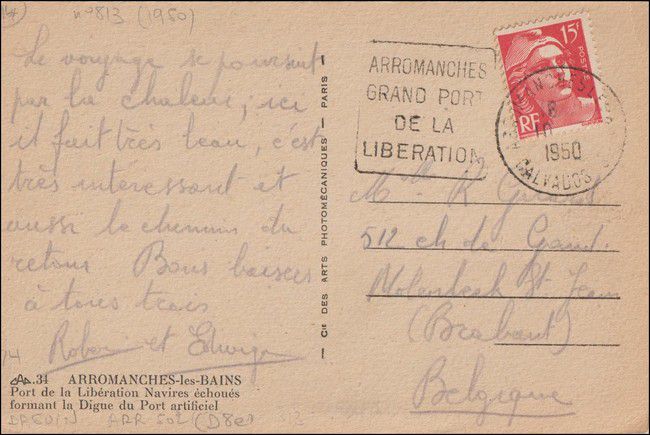 n° 813 (1950)
Le voyage se poursuit
par la chaleur, ici
il fait très beau, c'est
très intéressant et
aussi le chemin du
retour Bons baisers
à tous trois
Robert et Edwige
34 ARROMANCHES-les-BAINS
Port de la Libération Navires échoués
formant la Digue du Port artificiel
— Cie DES ARTS PHOTOMÉCANIQUES — PARIS —
ARROMANCHES
GRAND PORT
DE LA
LIBERATION
15F
POSTES
RF
8
10
1950
CALVADOS
512 ch de Gand
Molenbeek St Jean
(Brabant)
Belgique